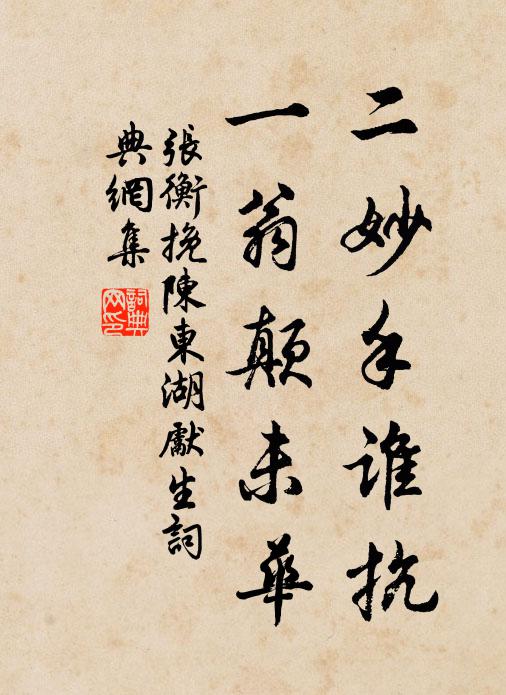 二妙手誰抗
一翁顛未華
張衡挽陳東湖獻生詞
典網集
詞典
网印